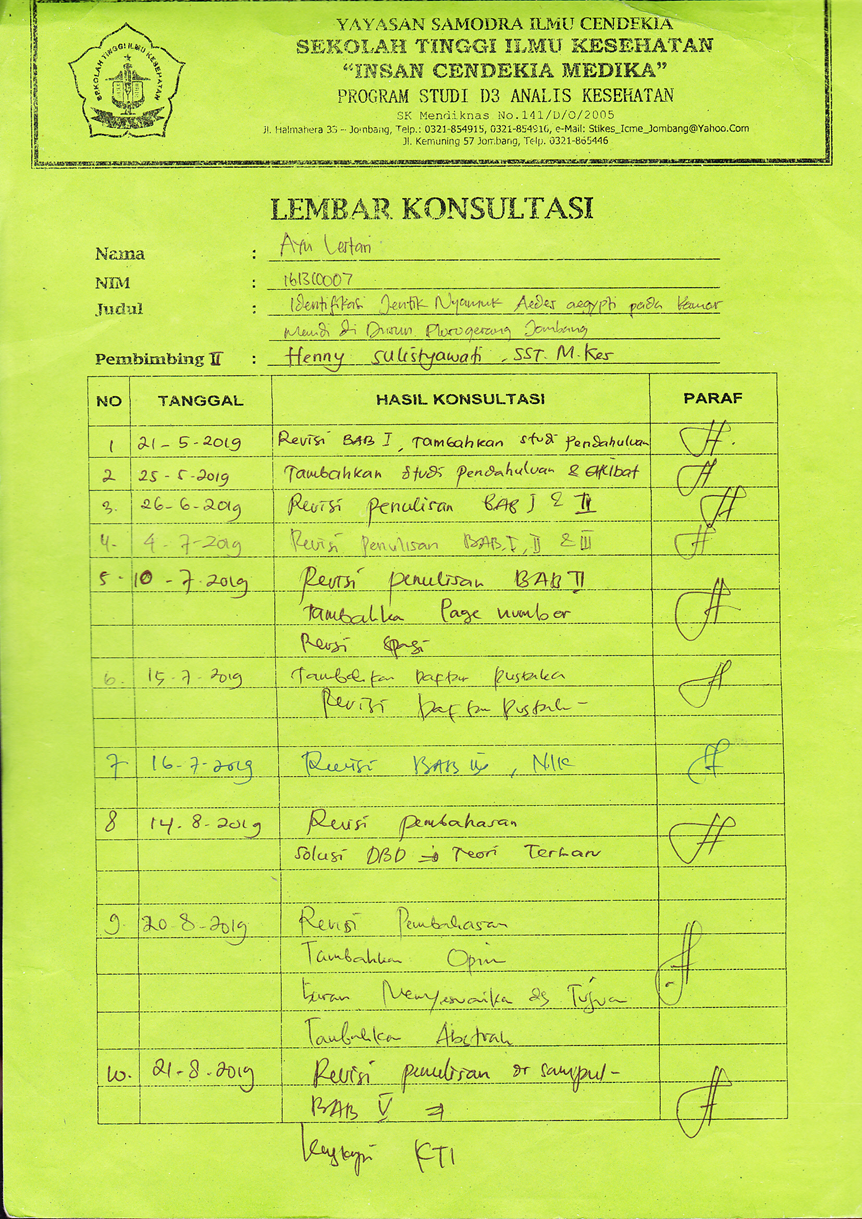 YAYASAN SAMODRA ILMU CENDEKIA
SEKOLAH TINGGI ILMU KESEHATAN
“INSAN CENDEKIA MEDIKA”
PROGRAM STUDI D3 ANALIS KESEHATAN
SK Mendiknas No.141/D/O/2005
Jl. Halmahera 33 – Jombang, Telp.: 0321-854915, 0321-854916, e-Mail: Stikes_Icme_Jombang@Yahoo.Com
Jl. Kemuning 57 Jombang, Telp. 0321-865446
SEKOLAH TINGGI ILMU KESEHATAN
LEMBAR KONSULTASI
Nama : Ayu Lestari
NIM : 161310007
Judul : Identifikasi Jentik Nyamuk Aedes aegypti pada kamar
Mandi di Dusun Jombang
Pembimbing II : Henny Sulistyawati, SST. M.Kes
NO TANGGAL HASIL KONSULTASI PARAF
1 21-5-2019 Revisi BAB I, Tambahkan studi pendahuluan
2 25-5-2019 Tambahkan studi pendahuluan & akibat
3. 26-6-2019 Revisi penulisan BAB I & II
4. 4-7-2019 Revisi penulisan BAB I, II & III
5. 10-7-2019 Revisi penulisan BAB II
Tambahka Page number
Revisi spasi
6. 15-7-2019 Tambahkan Daftar pustaka
Revisi Daftar pustaka
7 16-7-2019 Revisi BAB IV,
8 14.8-2019 Revisi pembahasan
Solusi DBD → Teori Terbaru
9. 20-8-2019 Revisi Pembahasan
Tambahkan Opini
Saran Menyesuaika dg Tujuan
Tambahkan Abstrak
10. 21-8-2019 Revisi penulisan dr sampul -
BAB V →
Lengkapi KTI